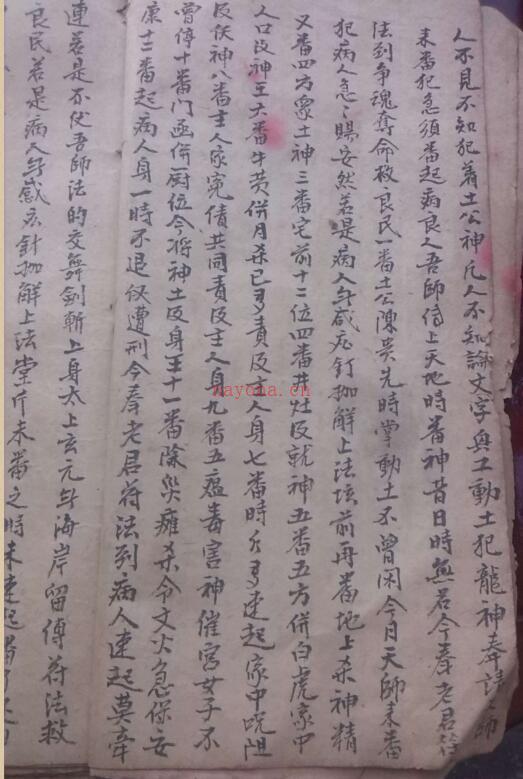 人不見不知犯着土公神凡人不知論文字與工動土犯龍神奉請師
来番犯急須番起病良人吾師傳上天地時番神昔日時無名今奉老君
法到争魂奪命救良民一番土公陳貴先時掌動土不曾闲今月天師来番
犯病人急々賜安然若是病人無感应釘枷解上法坛前再番地上杀神精
又番四方眾土神三番宅前十二位四番井灶及就神五番五方併白虎家中
人口及神王六番牛黄併月杀已多責及主人身七番時久多速起家中咒咀
及伏神八番主人家冤債共同責及主人身九番五瘟毒害神催宫女子不
曾停十番门丞併厨位今将神土及身王十一番除災瘫杀令文火急保安
康十二番起病人身一時不退伏遭刑今奉老君符法到病人速起莫牵
連若是不伏吾師法的交舞劍斬上身太上玄元海岸留傳符法救
良民若是病人無感应針枷解上法堂斤本番之時未速起
nayona.cn